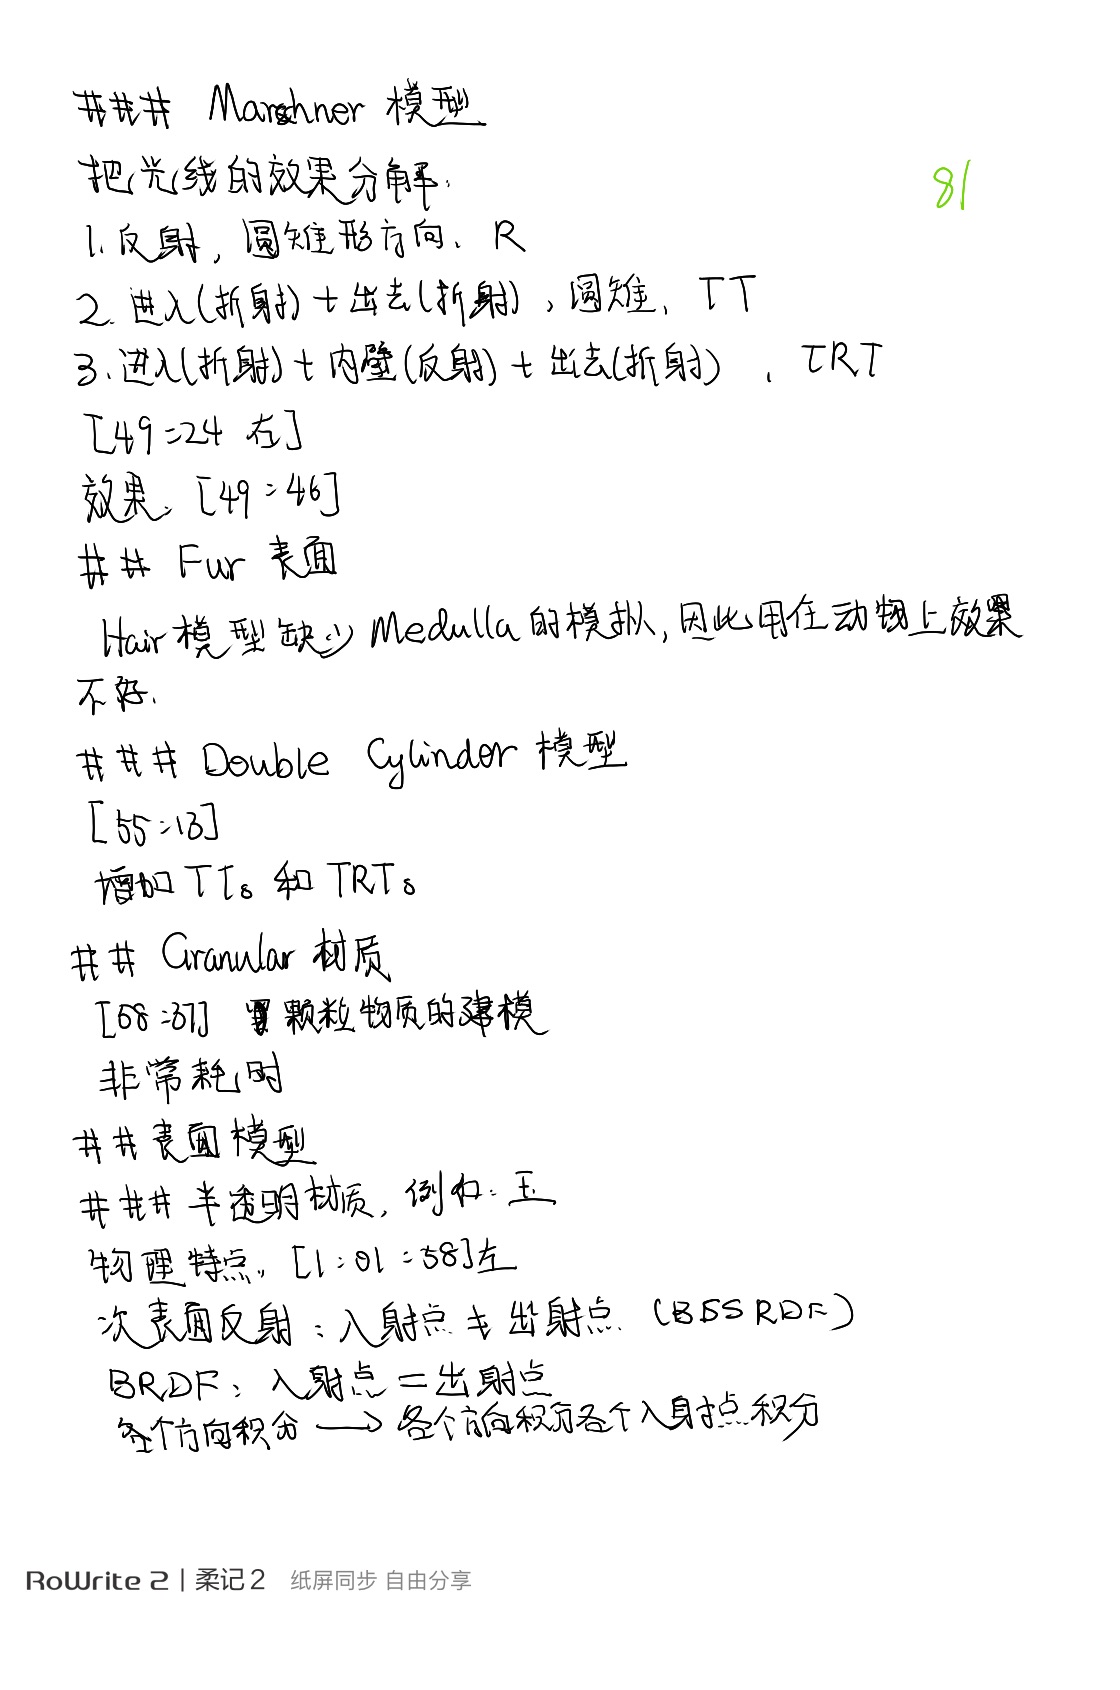 ### Marschner 模型
把光线的效果分解:
81
1. 反射, 圆锥形方向. R
2. 进入(折射)+出去(折射), 圆锥. TT
3. 进入(折射)+内壁(反射)+出去(折射). TRT
[49:24 右]
效果. [49:46]
## Fur 表面
Hair 模型缺少 Medulla 的模拟, 因此用在动物上效果
不好.
### Double Cylinder 模型
[55:13]
增加 TTs 和 TRTs
## Granular 材质
[58:37] 颗粒物质的建模
非常耗时
## 表面模型
### 半透明材质, 例如: 玉
物理特点. [1:01:58]左
次表面反射: 入射点≠出射点 (BSSRDF)
BRDF: 入射点=出射点
各个方向积分 → 各个方向积分各个入射点积分
RoWrite 2 | 柔记 2 纸屏同步 自由分享